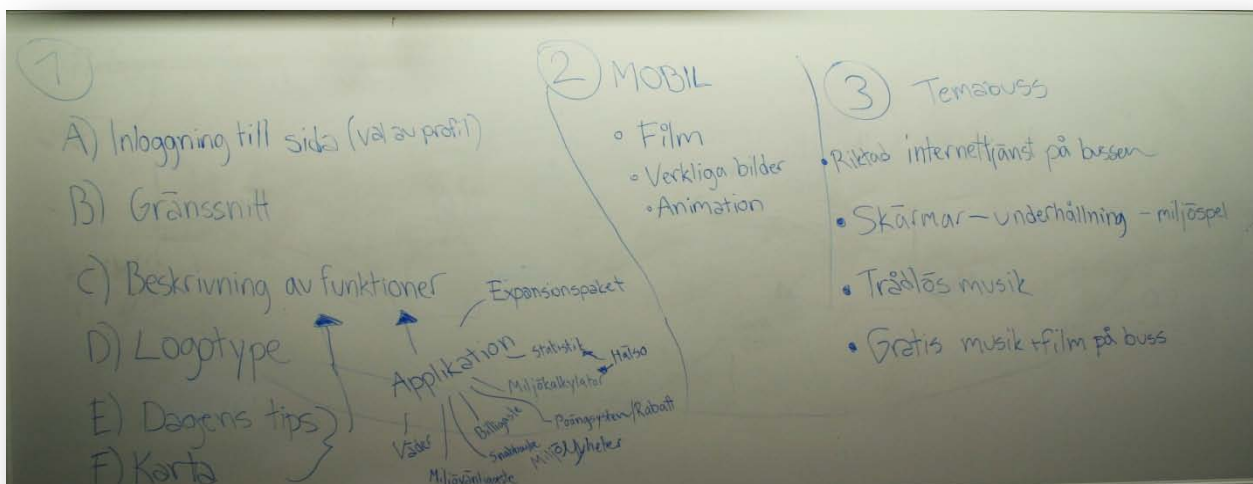 1
A) Inloggning till sida (val av profil)
B) Gränssnitt
C) Beskrivning av funktioner
D) Logotype
E) Dagens tips
F) Karta
Applikation
Expansionspaket
statistik
Hälso
Miljökalkylator
Poängsystem/Rabatt
MiljöNyheter
Billigaste
Snabbaste
Miljövänligaste
Väder
2 MOBIL
• Film
• Verkliga bilder
• Animation
3 Temabuss
• Riktad internettjänst på bussen
• Skärmar – underhållning – miljöspel
• Trådlös musik
• Gratis musik + film på buss